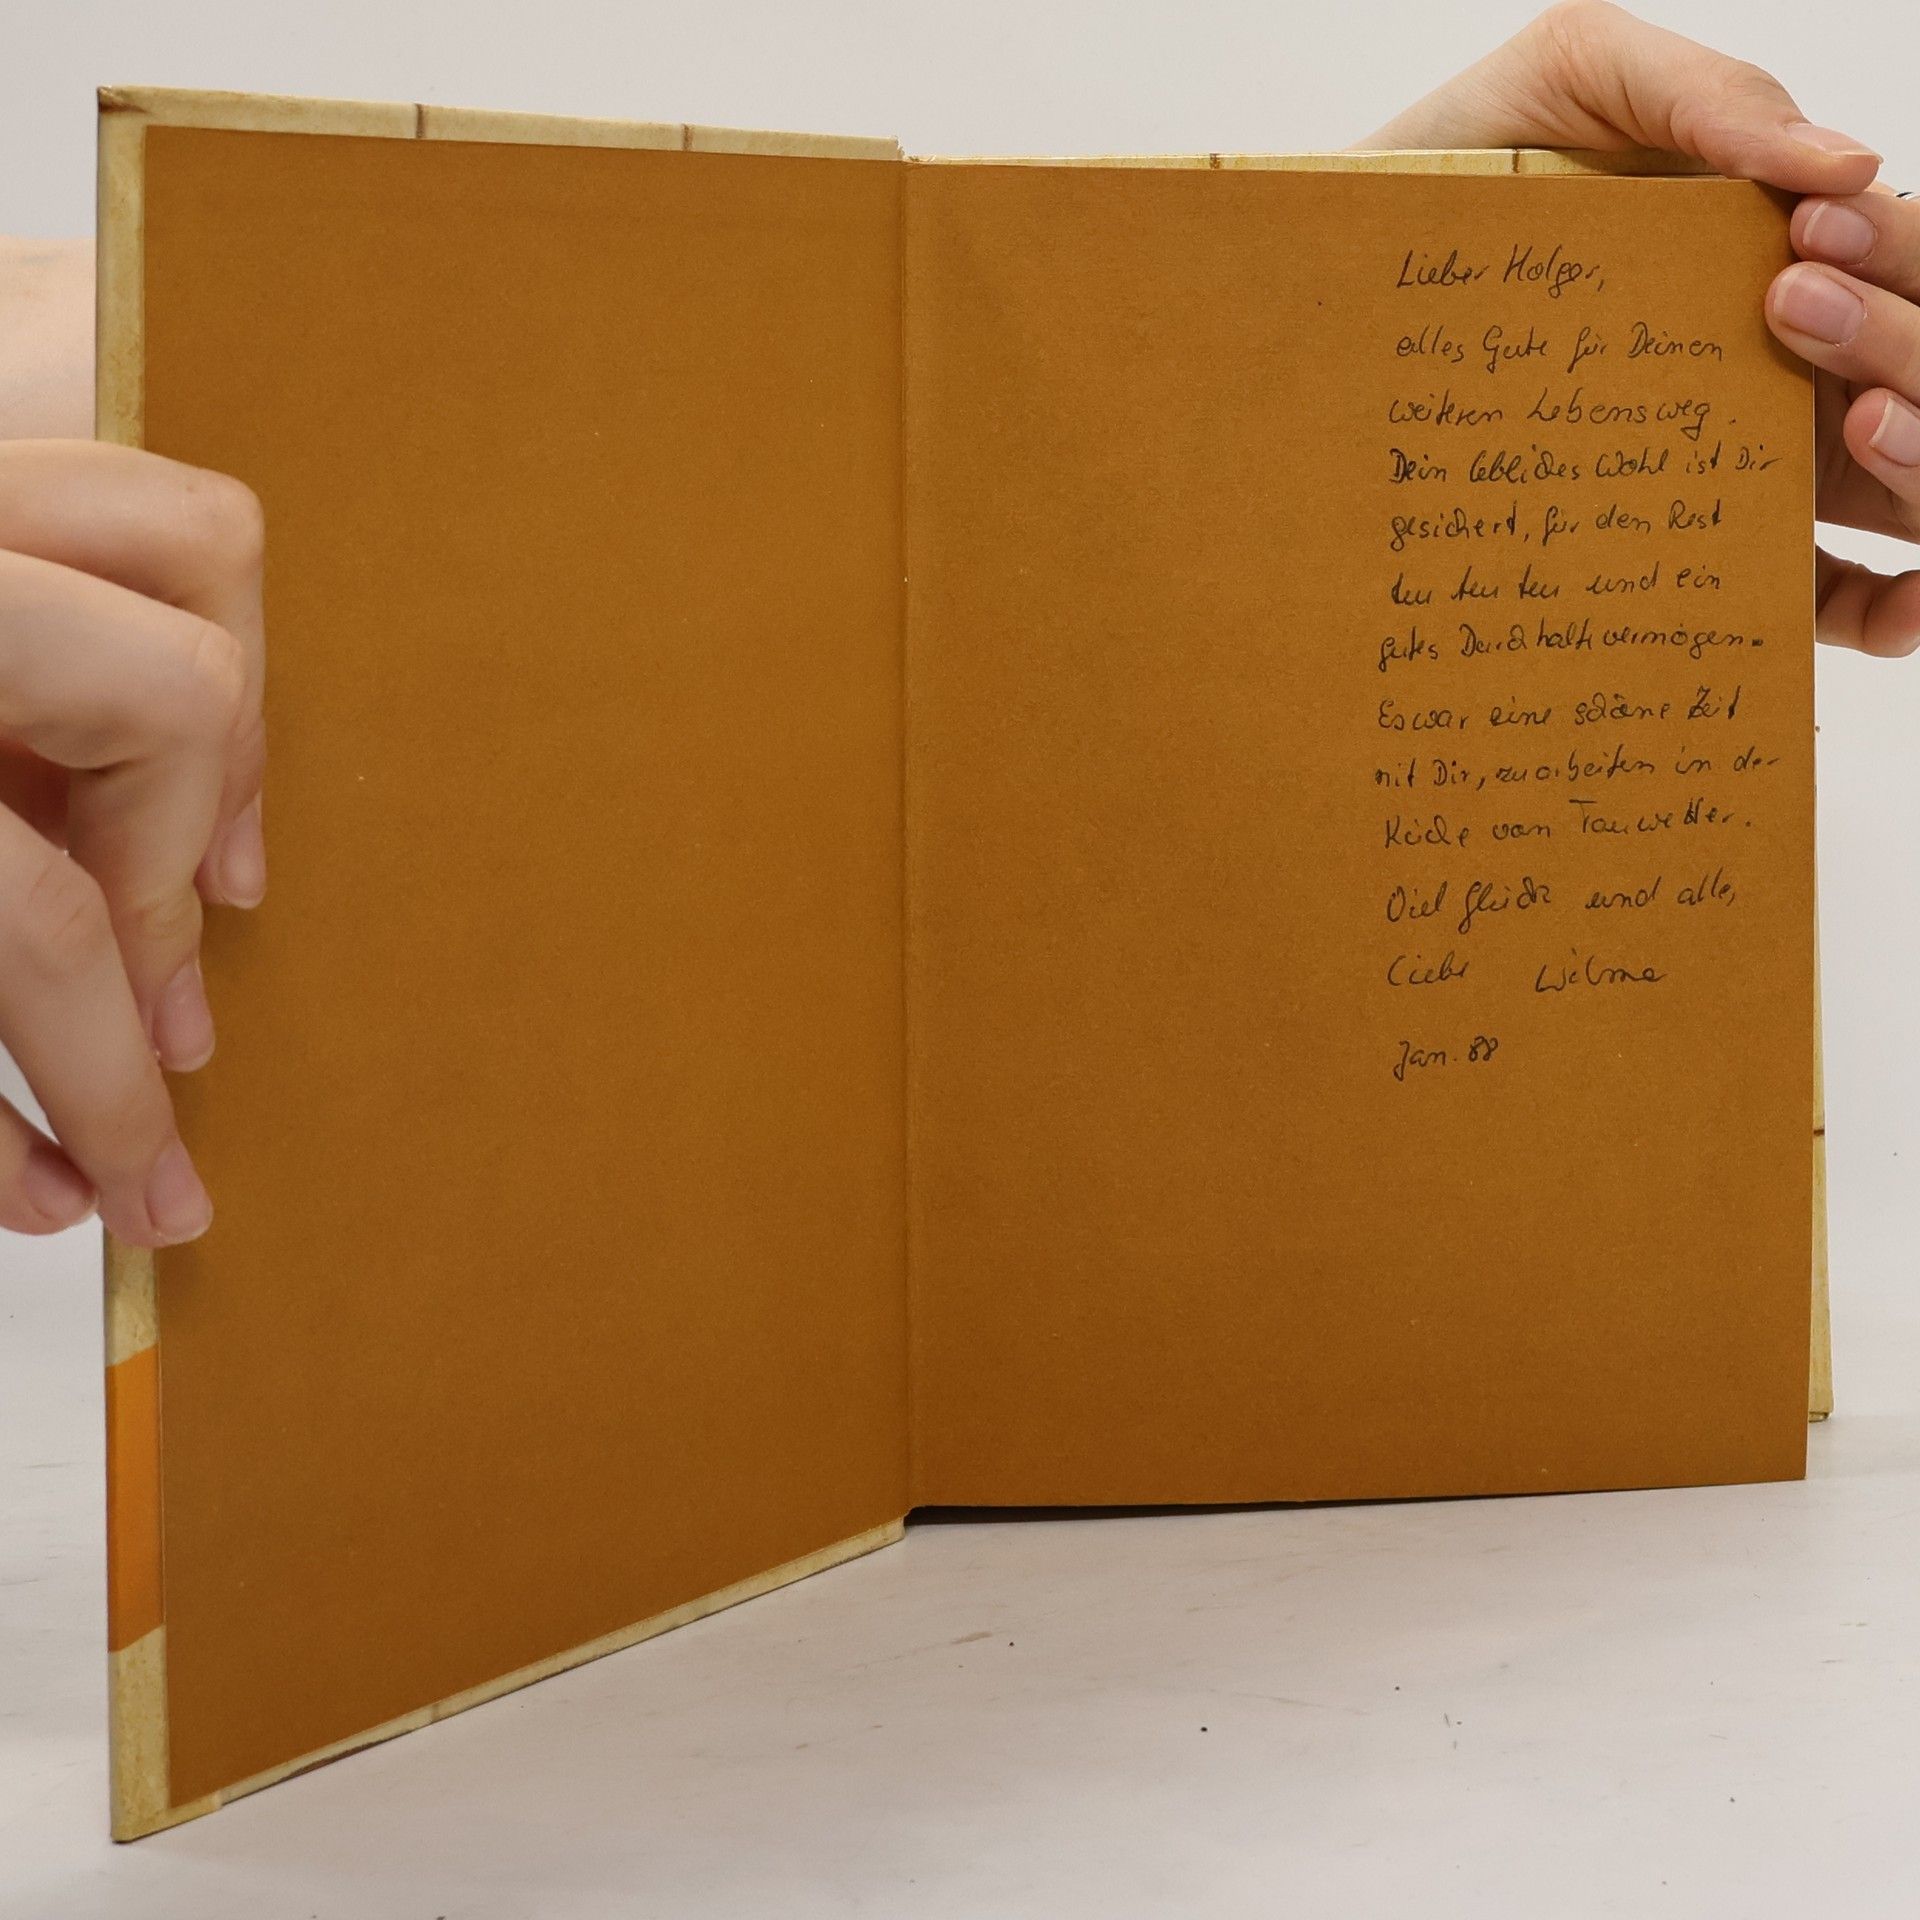 Lieber Holger,
alles Gute für Deinen
weiteren Lebensweg.
Dein leibliches Wohl ist Dir
gesichert, für den Rest
tu tu tu und ein
gutes Durchhaltevermögen.
Es war eine schöne Zeit
mit Dir, zu arbeiten in der
Küche von Tauwetter.
Viel Glück und alles
Liebe Wilma
Jan. 88